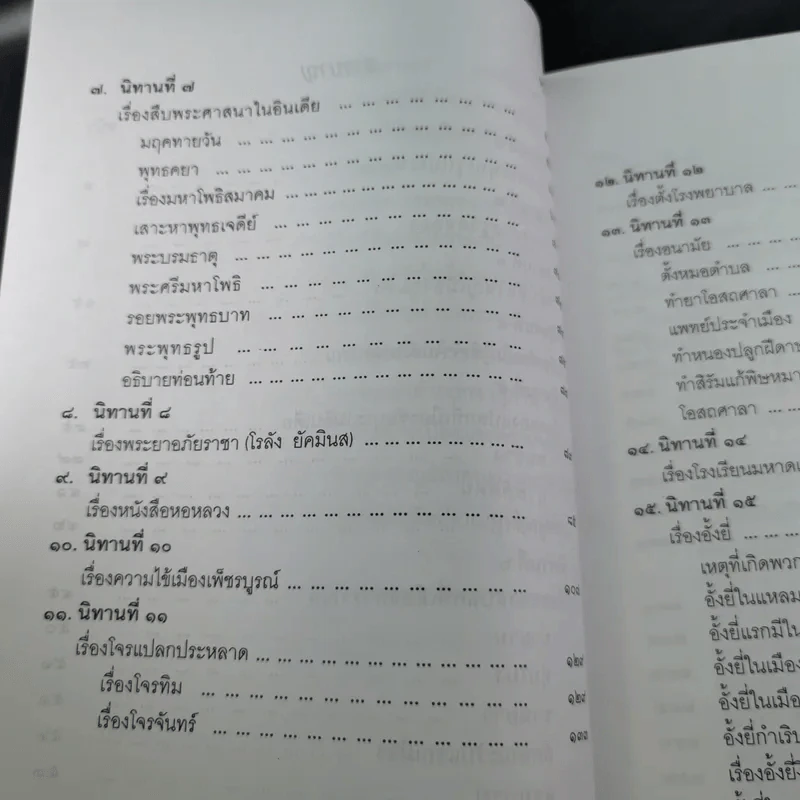 ๗. นิทานที่ ๗
เรื่องสืบพระศาสนาในอินเดีย ... ... ... ... ... ... ... ...
มฤคทายวัน ... ... ... ... ... ... ... ... ... ...
พุทธคยา ... ... ... ... ... ... ... ... ... ...
เรื่องมหาโพธิสมาคม ... ... ... ... ... ... ... ... ...
เสาะหาพุทธเจดีย์ ... ... ... ... ... ... ... ... ...
พระบรมธาตุ ... ... ... ... ... ... ... ... ... ...
พระศรีมหาโพธิ ... ... ... ... ... ... ... ... ... ...
รอยพระพุทธบาท ... ... ... ... ... ... ... ... ...
พระพุทธรูป ... ... ... ... ... ... ... ... ... ...
อธิบายท่อนท้าย ... ... ... ... ... ... ... ... ... ...
๘. นิทานที่ ๘
เรื่องพระยาอภัยราชา (โรลัง ยัคมินส) ... ... ... ... ... ... ...
๙. นิทานที่ ๙
เรื่องหนังสือหอหลวง ... ... ... ... ... ... ... ... ... ... ...
๑๐. นิทานที่ ๑๐
เรื่องความไข้เมืองเพ็ชรบูรณ์ ... ... ... ... ... ... ... ... ...
๑๑. นิทานที่ ๑๑
เรื่องโจรแปลกประหลาด ... ... ... ... ... ... ... ... ... ... ๑๒๙
เรื่องโจรทิม ... ... ... ... ... ... ... ... ... ... ... ๑๒๙
เรื่องโจรจันทร์ ... ... ... ... ... ... ... ... ... ... ... ๑๓๓
๑๒. นิทานที่ ๑๒
เรื่องตั้งโรงพยาบาล ... ...
๑๓. นิทานที่ ๑๓
เรื่องอนามัย ... ... ...
ตั้งหมอตำบล ... ...
ทำยาโอสถศาลา ...
แพทย์ประจำเมือง
ทำหนองปลูกฝีดาษ
ทำสิรัมแก้พิษหมา
โอสถศาลา ... ...
๑๔. นิทานที่ ๑๔
เรื่องโรงเรียนมหาดเ
๑๕. นิทานที่ ๑๕
เรื่องอั้งยี่ ... ... ...
เหตุที่เกิดพวก
อั้งยี่ในแหลม
อั้งยี่แรกมีใน
อั้งยี่ในเมือง
อั้งยี่ในเมือ
อั้งยี่กำเริบ
เรื่องอั้งยี่